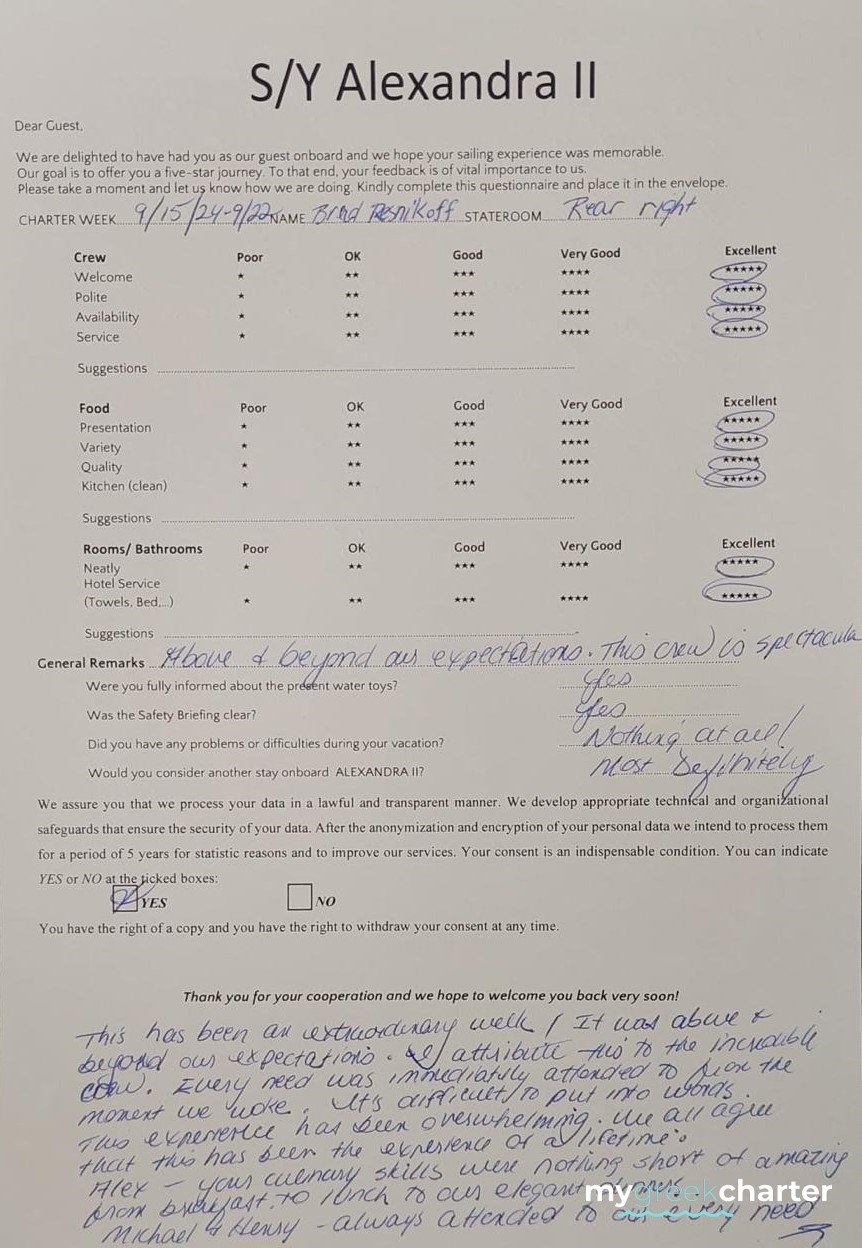 S/Y Alexandra II
Dear Guest,
We are delighted to have had you as our guest onboard and we hope your sailing experience was memorable.
Our goal is to offer you a five-star journey. To that end, your feedback is of vital importance to us.
Please take a moment and let us know how we are doing. Kindly complete this questionnaire and place it in the envelope.
CHARTER WEEK 9/15/24-9/22 NAME Brad Resnikoff STATEROOM Rear right
Crew Poor OK Good Very Good Excellent
Welcome * ** *** **** *****
Polite * ** *** **** *****
Availability * ** *** **** *****
Service * ** *** **** *****
Suggestions
Food Poor OK Good Very Good Excellent
Presentation * ** *** **** *****
Variety * ** *** **** *****
Quality * ** *** **** *****
Kitchen (clean) * ** *** **** *****
Suggestions
Rooms/ Bathrooms Poor OK Good Very Good Excellent
Neatly * ** *** **** *****
Hotel Service
(Towels, Bed,...) * ** *** **** *****
Suggestions
General Remarks Above & beyond our expectations. This crew is spectacula
Were you fully informed about the present water toys? Yes
Was the Safety Briefing clear? Yes
Did you have any problems or difficulties during your vacation? Nothing at all!
Would you consider another stay onboard ALEXANDRA II? Most Definitely
We assure you that we process your data in a lawful and transparent manner. We develop appropriate technical and organizational
safeguards that ensure the security of your data. After the anonymization and encryption of your personal data we intend to process them
for a period of 5 years for statistic reasons and to improve our services. Your consent is an indispensable condition. You can indicate
YES or NO at the ticked boxes:
YES NO
You have the right of a copy and you have the right to withdraw your consent at any time.
Thank you for your cooperation and we hope to welcome you back very soon!
This has been an extraordinary week! It was above &
beyond our expectations. I attribute this to the incredible
crew. Every need was immediately attended to from the
moment we woke. It's difficult to put into words.
This experience has been overwhelming. We all agree
that this has been the experience of a lifetime.
Alex - your culinary skills were nothing short of amazing
from breakfast, to lunch to our elegant
Michael & Henry - always attended to our every need
mygreekcharter